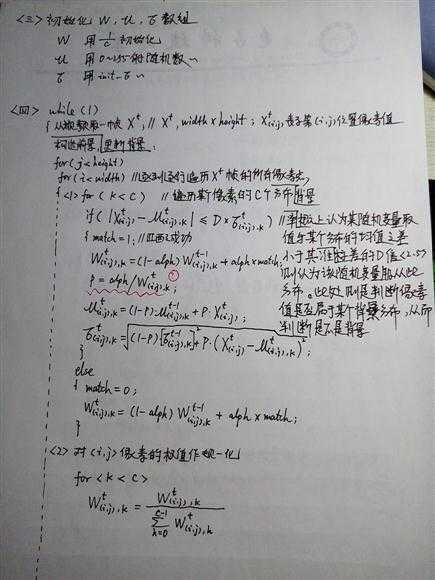 <三> 初始化 W, u, σ 数组
W 用 1/C 初始化
u 用 0~255的随机数~
σ 用 init-σ ~
<四> while(1)
{ 从视频取一帧 X^t, // X^t, width x height ; X^t_(i,j) 表示第(i,j)位置像素值
构造前景,更新背景;
for(j<height)
for(i<width) //逐列逐行遍历 X^t 帧的所有像素点,
{ <1> for (k<C) // 遍历某像素的C个分布背景
if( |X^t_(i,j) - u^t_(i,j),k| ≤ D×σ^t_(i,j),k ) //上认为某随机变量取
{ match=1; //匹配成功 值与某个分布的均值之差
小于其标准差的D值<2.5>
W^t_(i,j),k = (1-alph) W^t-1_(i,j),k + alph × match; 则认为该随机变量服从此
P = alph/W^t_(i,j),k ; 分布。此处则是判断像素
u^t_(i,j),k = (1-P)·u^t-1_(i,j),k + P·X^t_(i,j) ; 值是否属于某个背景分布,从而
判断是不是背景
σ^t_(i,j),k = √((1-P)[σ^t-1_(i,j),k]^2 + P·(X^t_(i,j) - u^t_(i,j),k)^2) ;
}
else
{ match=0;
W^t_(i,j),k = (1-alph) W^t-1_(i,j),k + alph × match;
}
<2> 对<i,j>像素的权值作归一化
for <k<C>
W^t_(i,j),k = W^t_(i,j),k / Σ_(k=0)^(C-1) W^t_(i,j),k